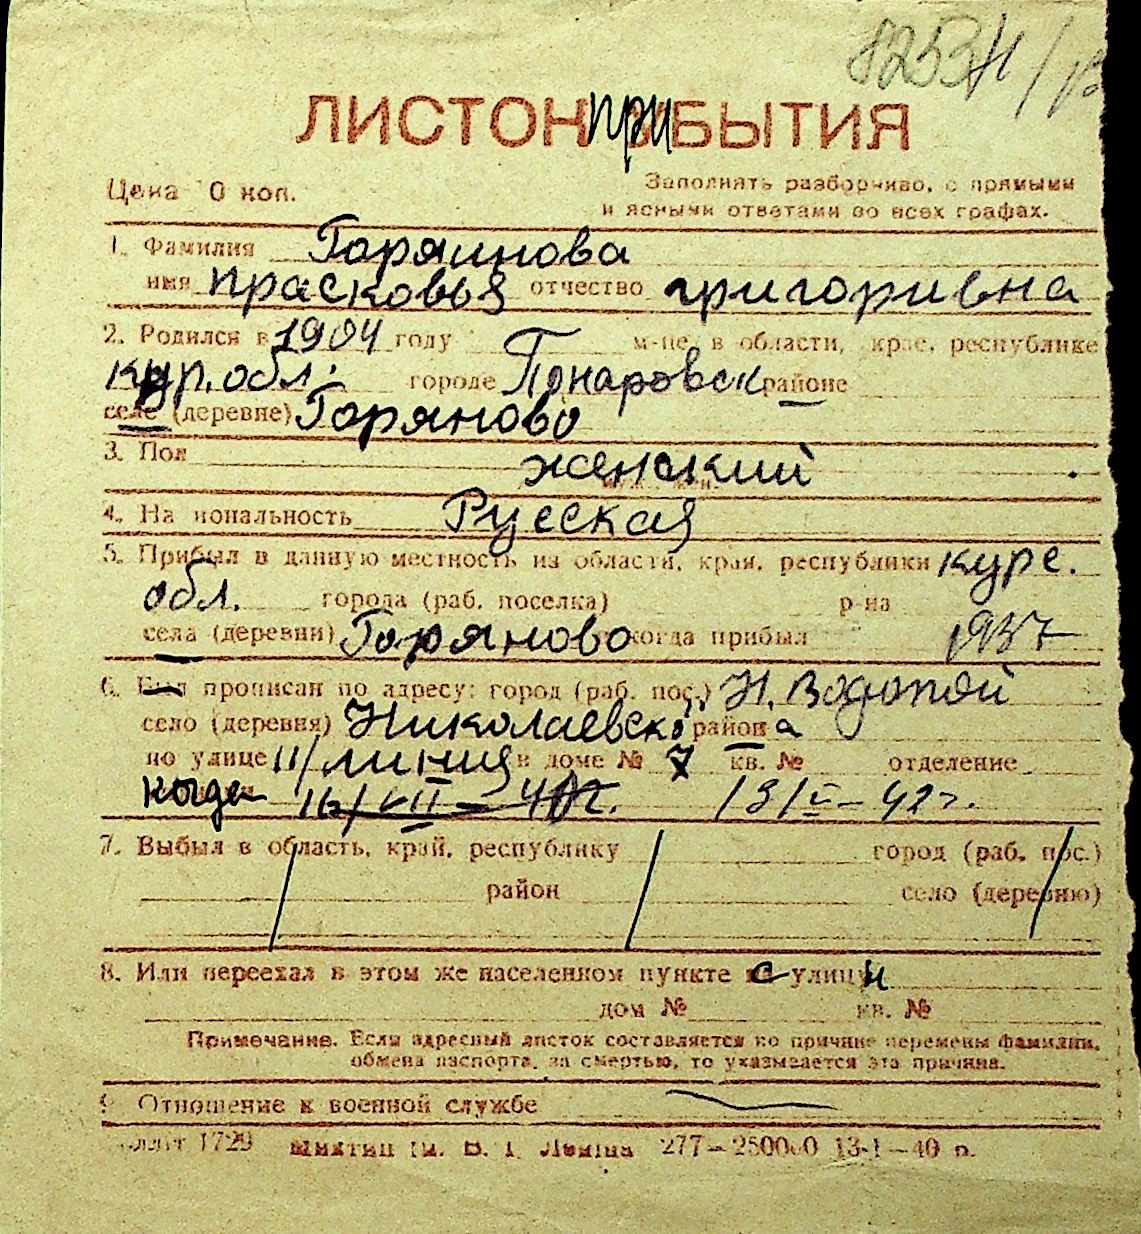 8253
ЛИСТОК ПРИБЫТИЯ
Цена 10 коп. Заполнять разборчиво, с прямыми
и ясными ответами во всех графах.
1. Фамилия Горяинова
имя прасковья отчество григориевна
2. Родился в 1904 году м-це, в области, крае, республике
кур. обл. городе Понаровск районе
селе (деревне) Горяново
3. Пол женский
4. Национальность Русская
5. Прибыл в данную местность из области, края, республики курс.
обл. города (раб. поселка) р-на
села (деревни) Горяново когда прибыл 1937
6. Был прописан по адресу: город (раб. пос.) Н. Водопой
село (деревня) Николаевско района
по улице 11/линия в доме № 7 кв. № отделение
когда 16/VII – 40г. 13/V – 42 г.
7. Выбыл в область, край, республику город (раб. пос.)
район село (деревню)
8. Или переехал в этом же населенном пункте с улицы
дом № кв. №
Примечание. Если адресный листок составляется по причине перемены фамилии,
обмена паспорта, за смертью, то указывается эта причина.
9. Отношение к военной службе
1729 им. В. И. Ленина 277—250000 13-1—40 р.